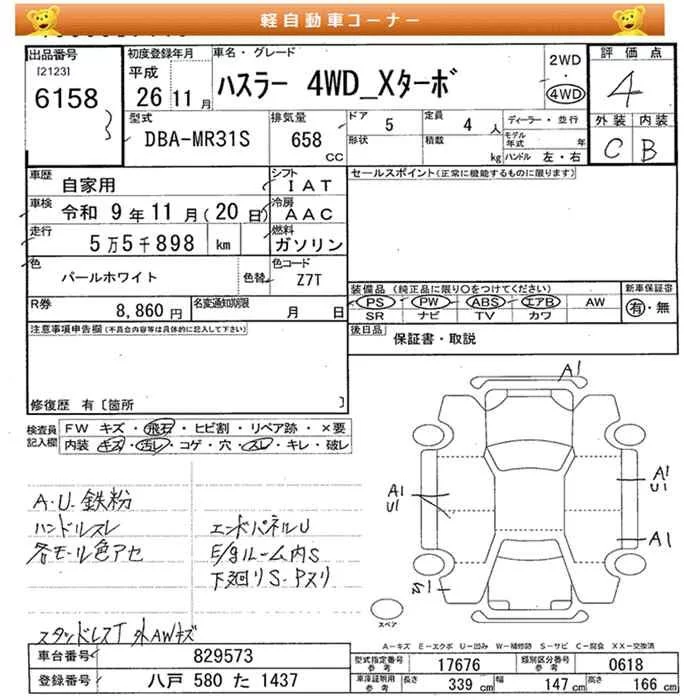 軽自動車コーナー
出品番号
[2123]
6158
初度登録年月
平成
26年11月
車名・グレード
ハスラー 4WD_Xターボ
2WD
・
4WD
評価点
4
外装 内装
C B
型式
DBA-MR31S
排気量
658
CC
ドア 5
形状
定員 4 人
積数 kg
ディーラー・並行
モデル年式 年
ハンドル 左・右
車歴
自家用
シフト
IAT
車検 令和 9年11月(20日)
冷房
AAC
走行
5万5千898 km
燃料
ガソリン
色
パールホワイト
色替
色コード
Z7T
R券
8,860円
名変通知期限
月 日
セールスポイント(正常に機能するものに限ります)
装備品 (純正品に限り〇をつけてください)
PS PW ABS エアB AW
SR ナビ TV カワ
新車保証書
有・無
後日品
保証書・取説
注意事項申告欄(不具合内容等は具体的に記入して下さい)
修復歴 有〔箇所 〕
検査員記入欄
FW キズ・飛石・ヒビ割・リペア跡・×要
内装 キズ・汚レ・コゲ・穴・スレ・キレ・破レ
A・U 鉄粉
ハンドルスレ
各モール色アセ
エンドパネルU
E/gルーム内S
下廻りS・Pヌリ
スタッドレスT 外AWキズ
A1
A1
U1
A1
U1
A1
スペア
A-キズ E-エクボ U-凹み W-補修跡 S-サビ C-腐食 XX-交換済
車台番号 829573
登録番号 八戸 580 た 1437
型式指定番号
参考
17676
類別区分番号
参考
0618
車庫証明用
参考
長さ 339 cm
幅 147 cm
高さ 166 cm